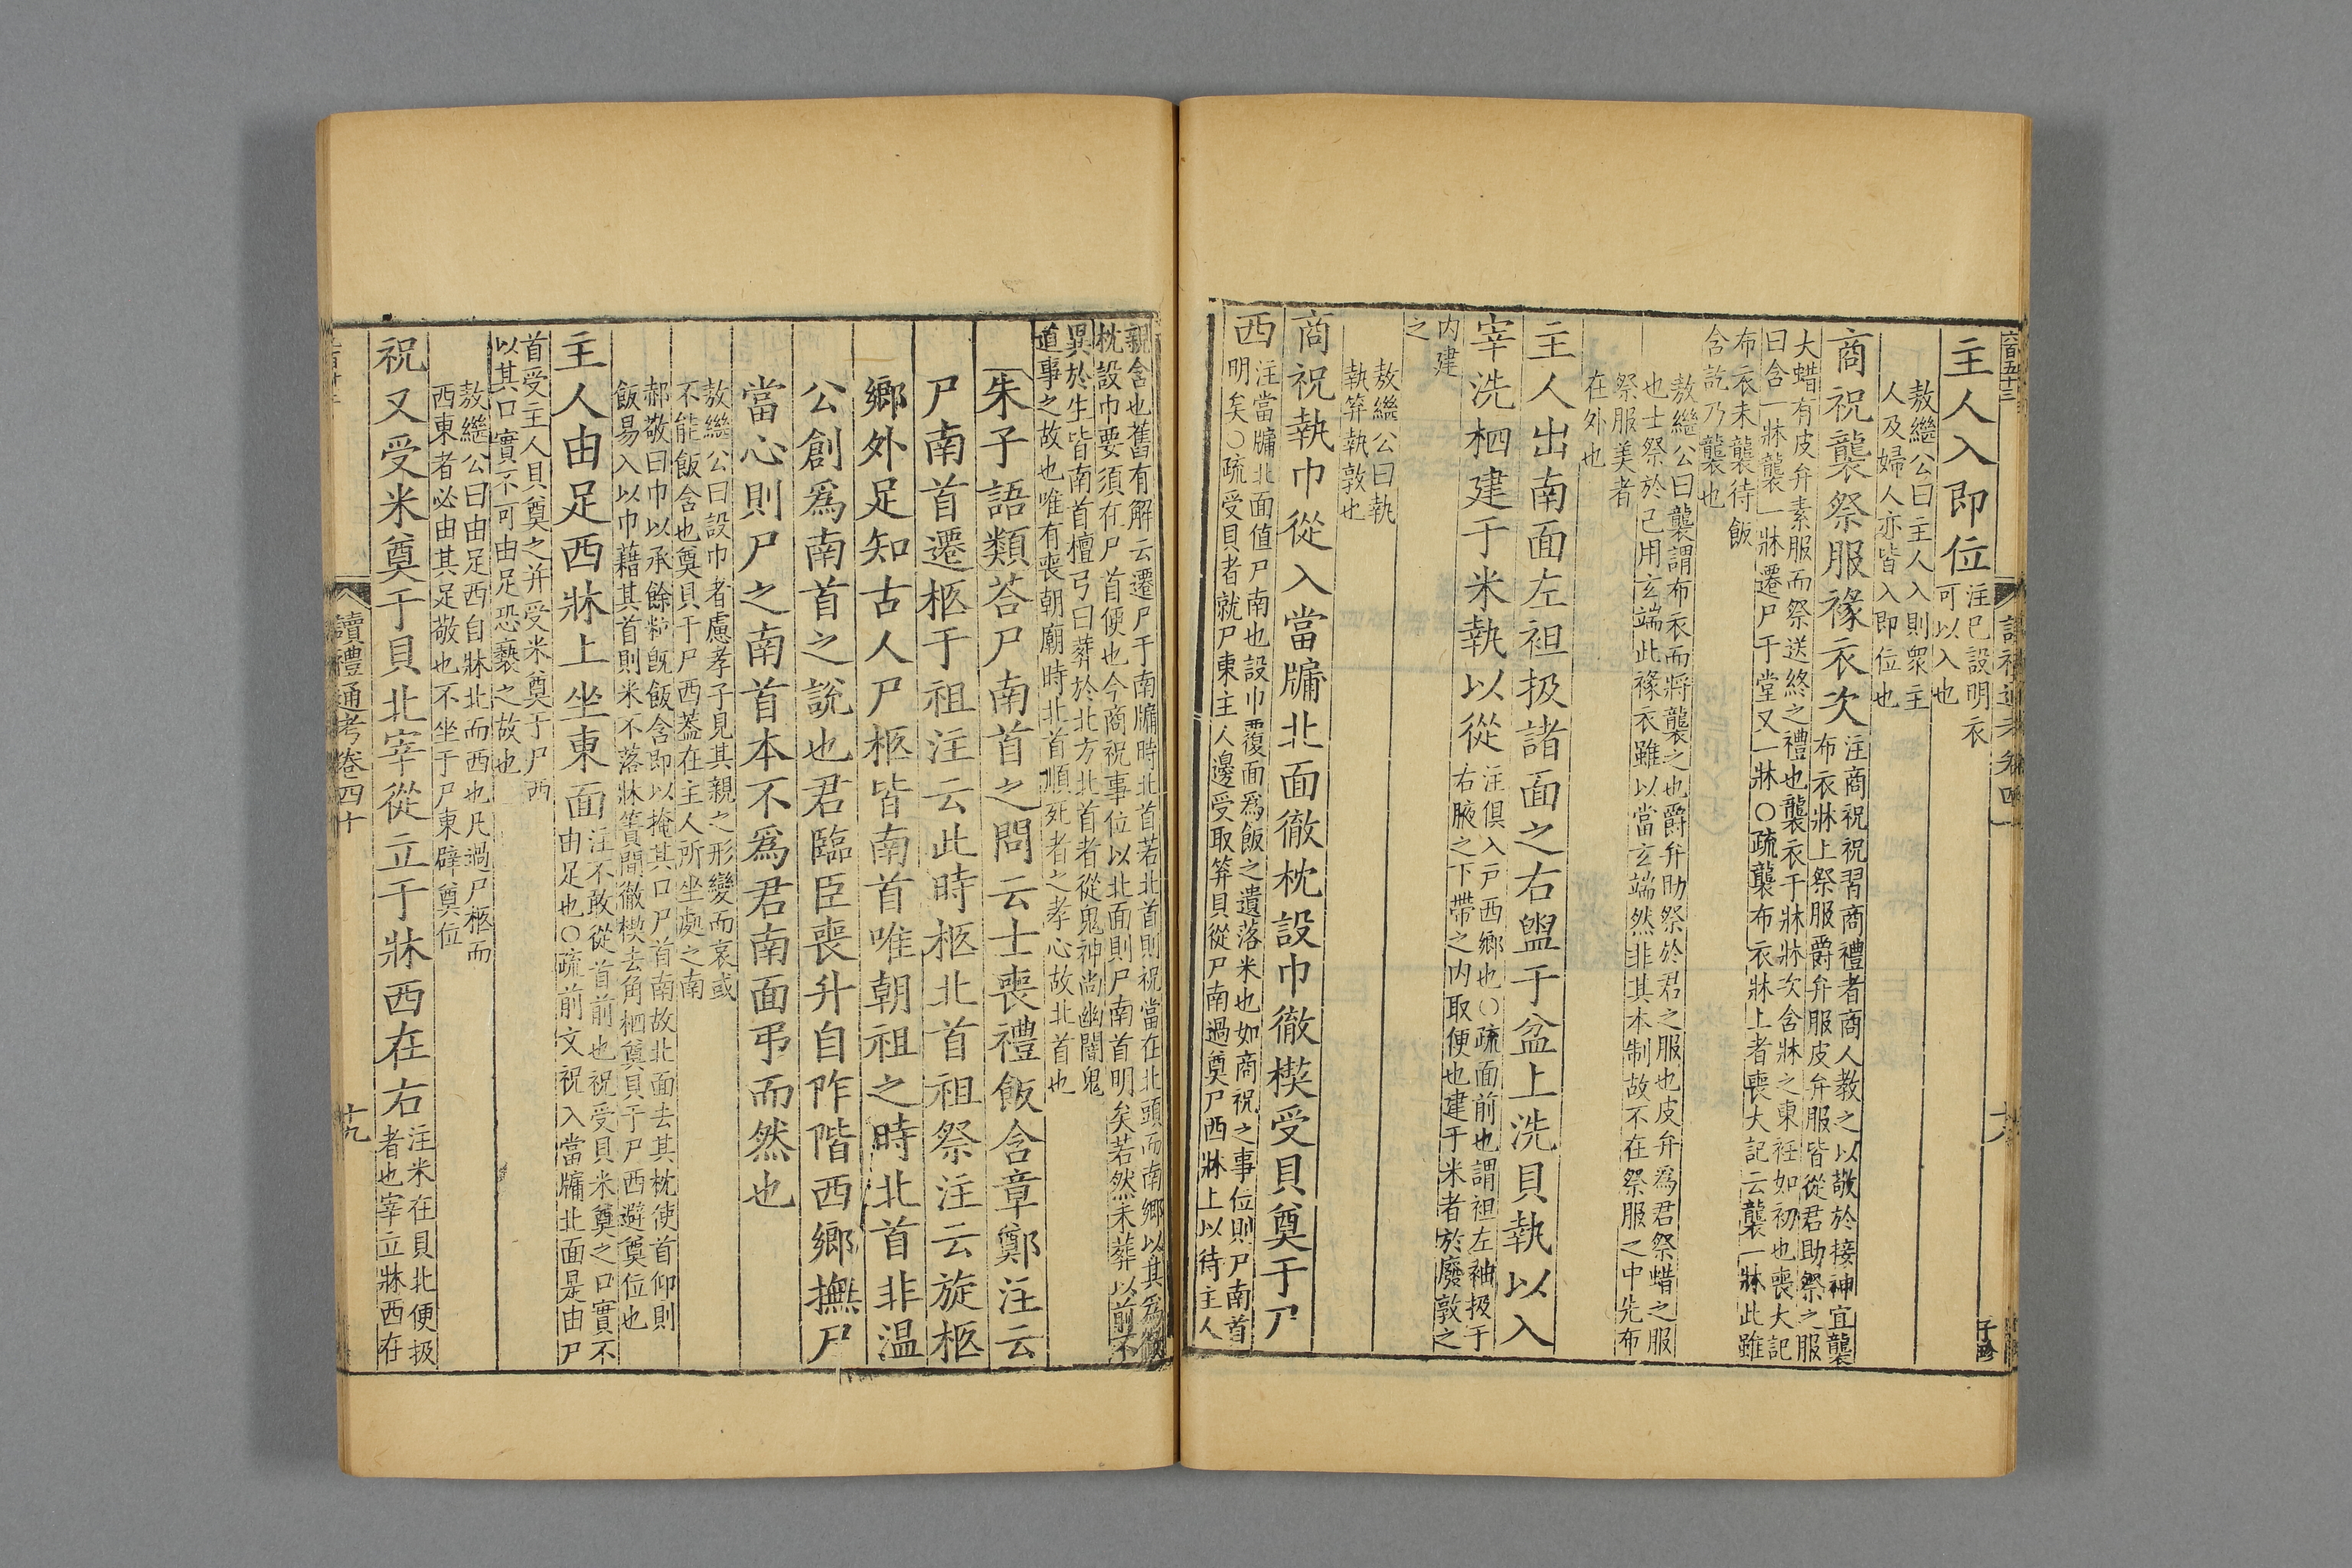 六百五十三
主人入即位
注已設明衣
可以入也
敖繼公曰主人入則衆主
人及婦人亦皆入即位也
商祝襲祭服褖衣次
注商祝祝習商禮者商人教之以敬於接神宜襲
布衣牀上祭服爵弁服皮弁服皆從君助祭之服
大蜡有皮弁素服而祭送終之禮也襲衣于牀牀次含牀之東衽如初也喪大記
曰含一牀襲一牀遷尸于堂又一牀○疏襲布衣牀上者喪大記云襲一牀此雖
布衣未襲待飯
含訖乃襲也
敖繼公曰襲謂布衣而將襲之也爵弁助祭於君之服也皮弁爲君祭蜡之服
也士祭於己用玄端此褖衣雖以當玄端然非其本制故不在祭服之中先布
祭服美者
在外也
主人出南面左袒扱諸面之右盥于盆上洗貝執以入
宰洗柶建于米執以從
注俱入戶西鄉也○疏面前也謂袒左袖扱于
右腋之下帶之內取便也建于米者於廢敦之
內建
之
敖繼公曰執
執笲執敦也
商祝執巾從入當牖北面徹枕設巾徹楔受貝奠于尸
西
注當牖北面值尸南也設巾覆面爲飯之遺落米也如商祝之事位則尸南首
明矣○疏受貝者就尸東主人邊受取笲貝從尸南過奠尸西牀上以待主人
六
子珍
親含也舊有解云遷尸于南牖時北首若北首則祝當在北頭而南鄉以其爲徹
枕設巾要須在尸首便也今商祝事位以北面則尸南首明矣若然未葬以前不
異於生皆南首檀弓曰葬於北方北首者從鬼神尚幽闇鬼
道事之故也唯有喪朝廟時北首順死者之孝心故北首也
朱子語類荅尸南首之問云士喪禮飯含章鄭注云
尸南首遷柩于祖注云此時柩北首祖祭注云旋柩
鄉外足知古人尸柩皆南首唯朝祖之時北首非溫
公創爲南首之說也君臨臣喪升自阼階西鄉撫尸
當心則尸之南首本不爲君南面弔而然也
敖繼公曰設巾者慮孝子見其親之形變而哀或
不能飯含也奠貝于尸西葢在主人所坐處之南
郝敬曰巾以承餘粒旣飯含即以掩其口尸首南故北面去其枕使首仰則
飯易入以巾藉其首則米不落牀簀間徹楔去角柶奠貝于尸西避奠位也
主人由足西牀上坐東面
注不敢從首前也祝受貝米奠之口實不
由足也○疏前文祝入當牖北面是由尸
首受主人貝奠之并受米奠于尸西
以其口實不可由足恐褻之故也
敖繼公曰由足西自牀北而西也凡過尸柩而
西東者必由其足敬也不坐于尸東辟奠位
祝又受米奠于貝北宰從立于牀西在右
注米在貝北便扱
者也宰立牀西在
讀禮通考卷四十
十九